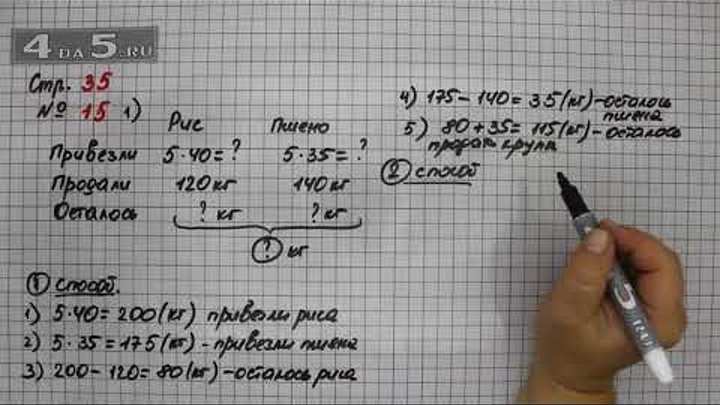 4 DA 5.RU
Стр. 35
№ 15 1)
Рис Пшено
Привезли 5·40=? 5·35=?
Продали 120кг 140кг
Осталось ? кг ? кг
? кг
1 способ.
1) 5·40=200(кг) привезли риса
2) 5·35=175(кг)-привезли пшена
3) 200-120=80(кг)-осталось риса
4) 175-140=35(кг)-осталось
пшена
5) 80+35=115(кг)-осталось
продать крупы
2 способ